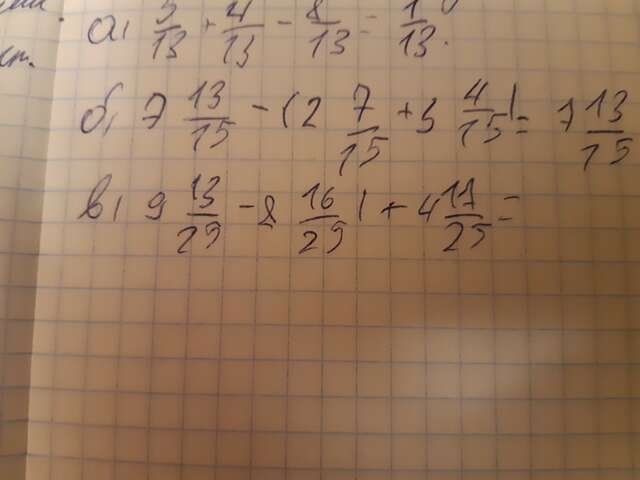 ст.
а) 5/13 + 4/13 - 8/13 = 1/13.
б) 7 13/15 - (2 7/15 + 3 4/15) = 1 13/15
в) 9 13/25 - 8 16/25) + 4 17/25 =